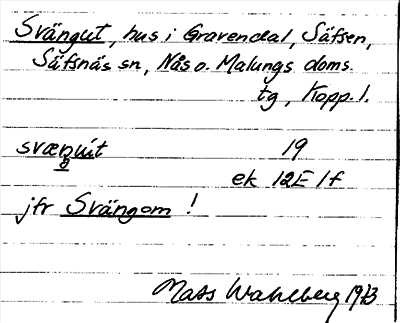 Svängut, hus i Gravendal, Säfsen,
Säfsnäs sn, Nås o. Malungs doms.
tg, Kopp. l.
svæŋu̇t 19
ek 12E 1f
jfr Svängom !
Mats Wahlberg 1973